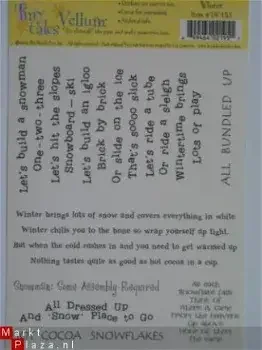 Vellum
Winter
Let's build a snowman
One-two-three
Let's hit the slopes
Snowboard - ski
Let's build an igloo
Brick by brick
Or slide on the ice
That's soooo slick
Let's ride a tube
Or ride a sleigh
Wintertime brings
Lots of play
ALL BUNDLED UP
Winter brings lots of snow and covers everything in white
Winter chills you to the bone so wrap yourself up tight.
But when the cold comes in and you need to get warmed up
Nothing tastes quite as good as hot cocoa in a cup.
Snowmen: Some Assembly Required
All Dressed UP
And "Snow" Place to Go
COCOA SNOWFLAKES
As each
Snowflake falls
Think of
Them
From
Up above
Markt
Plaza.nl